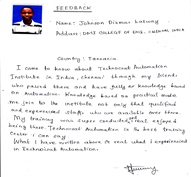 FEEDBACK
Name: Johnson Dismas
Address: DMI COLLEGE OF ENG.
Country: Tanzania
I come to know about Technocrat Automation
Institute in India, chennai through my friends
who passed there and have fully knowledge based
on Automation. Knowledge based on practical made
me join to the institute not only that qualified
and experienced staffs who are available over there.
My training was super conducted and enjoyed
being there. Technocrat Automation is the best training
center i can say
What I have written above is real what I experienced
in Technocrat Automation.